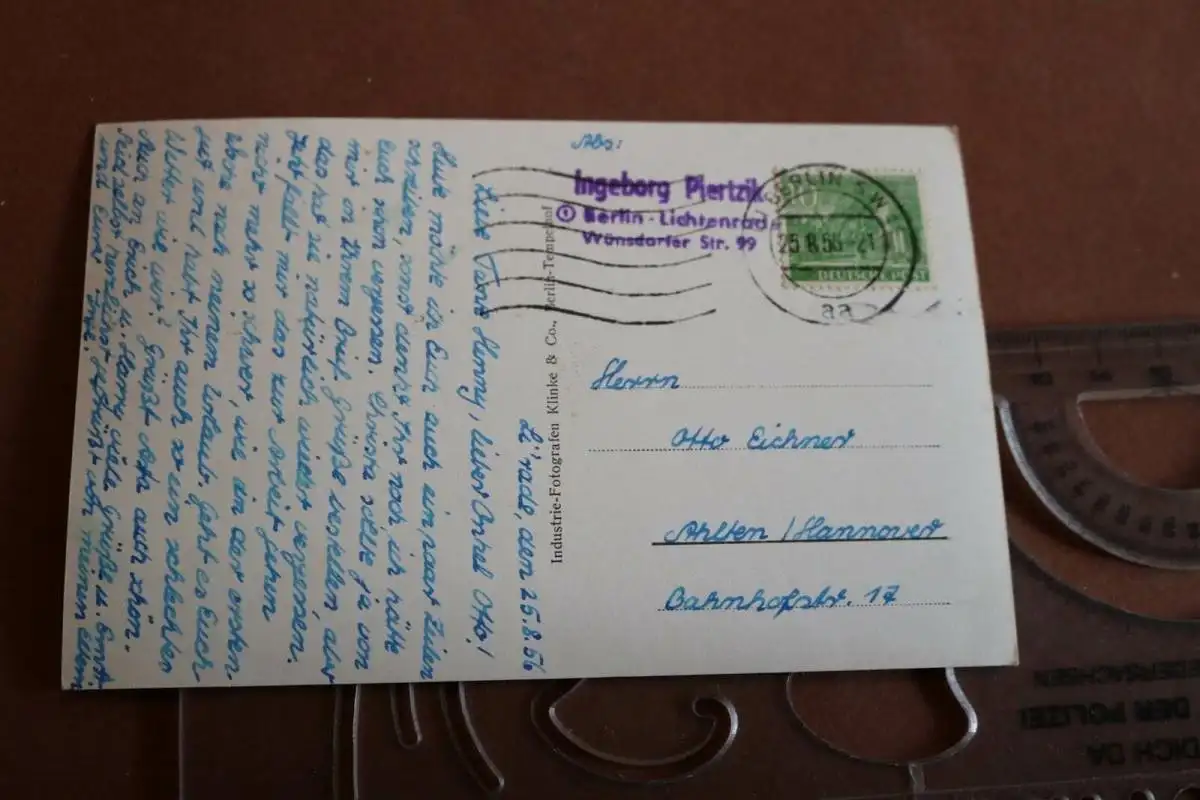 Abs:
Ingeborg Piertzik
① Berlin-Lichtenrade
Wünsdorfer Str. 99
BERLIN SW
25.8.56-21
aa
10
DEUTSCHE POST
Herrn
Otto Eichner
Ahlten/Hannover
Bahnhofstr. 17
Industrie-Fotografen Klinke & Co., Berlin-Tempelhof
Li'rade, den 25.8.56
Liebe Tante Henny, lieber Onkel Otto!
Heute möchte ich Euch auch ein paar Zeilen
schreiben, sonst denkt Ihr noch, ich hätte
Euch schon vergessen. Christa sollte ja von
mir in Ihrem Brief Grüße bestellen, aber
das hat sie natürlich wieder vergessen.
Jetzt fällt mir das zur Arbeit gehen
nicht mehr so schwer, wie in der ersten
Woche nach meinem Urlaub. Geht es Euch
gut und habt Ihr auch so ein schlechtes
Wetter wie wir? Grüßt bitte auch schön
Seid selbst herzlichst gegrüßt von meinen Eltern
und Eure Inge.
DICH DA
DER POLIZEI
NIEDERSACHSEN